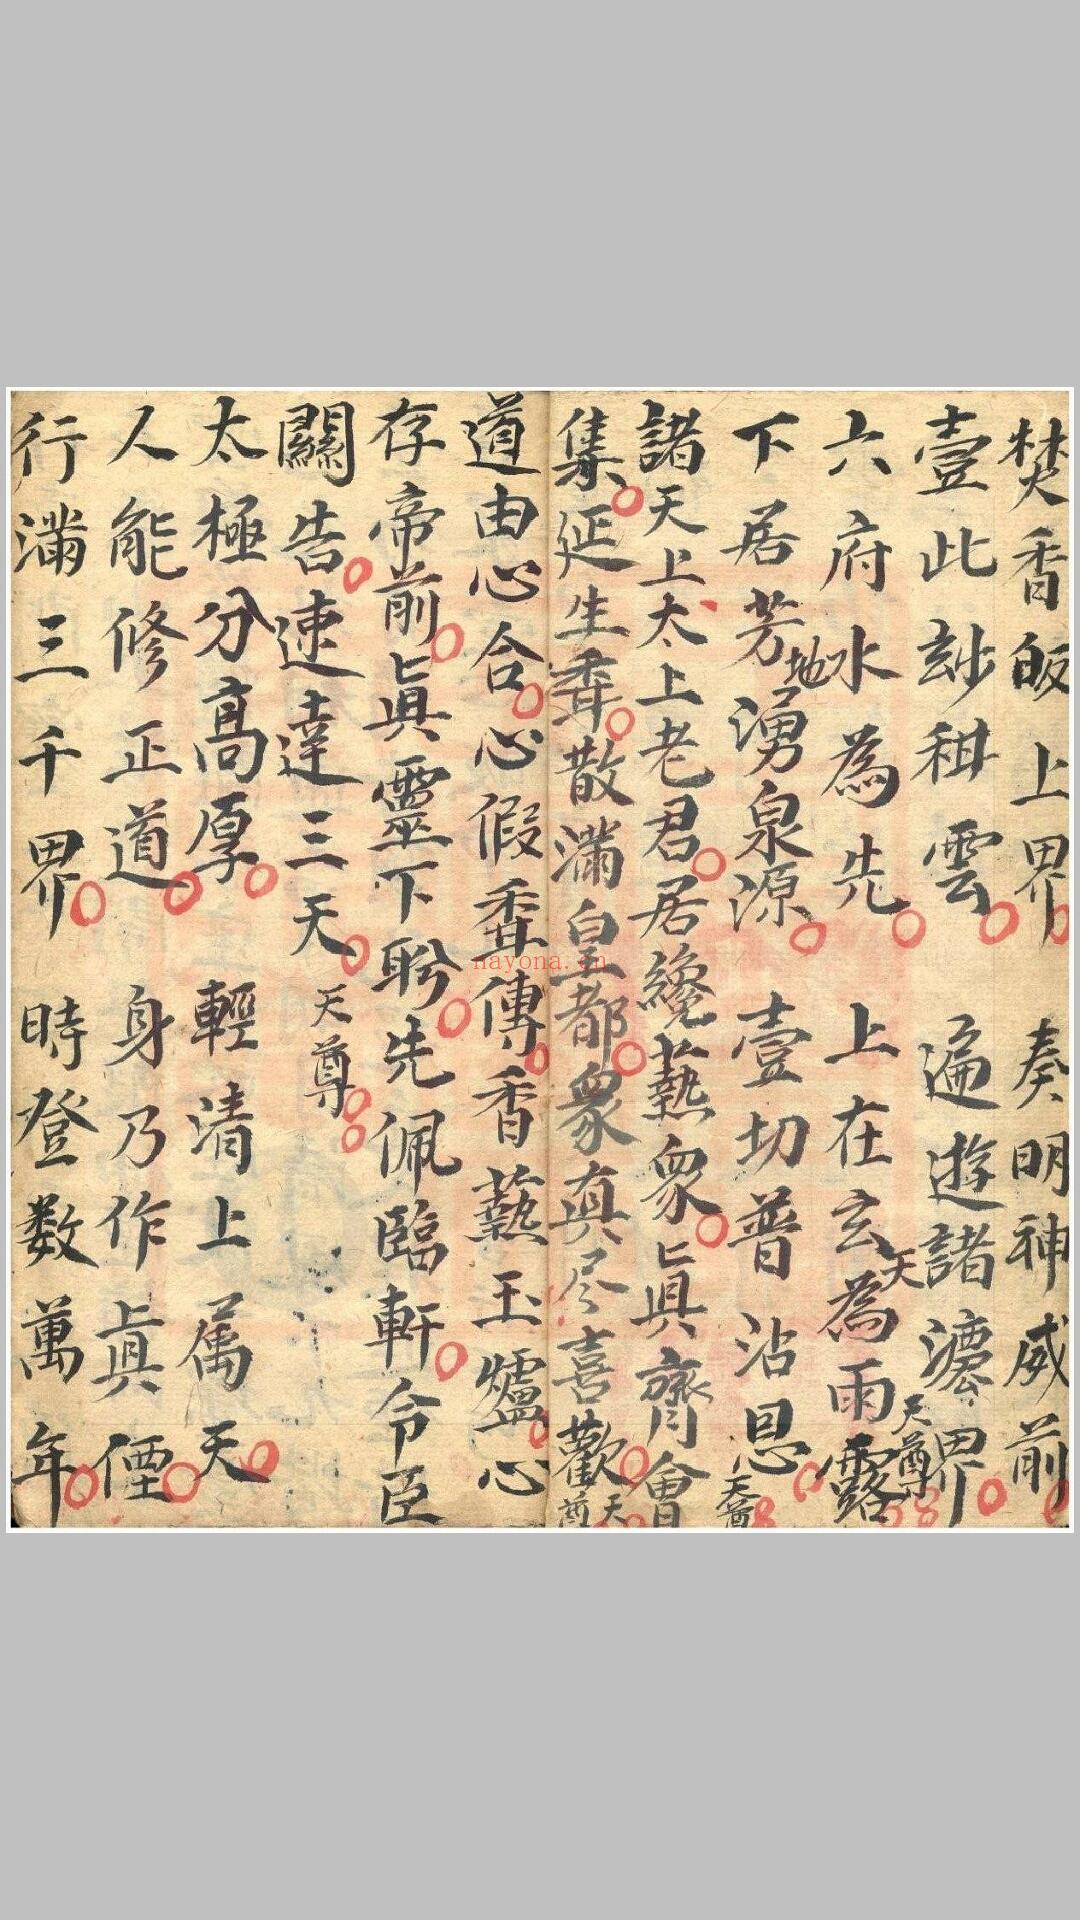 焚香皈上界 奏明神威前
壹此玅秓雲 遍遊諸濃界 天尊
六府水為先 上在玄天為雨露
下居芳地湧泉源 壹切普沾恩 天尊
諸天上太上老君居纔爇眾眞齊會
集延生香散滿皇都眾真尽喜歡 天尊
道由心合心假香傳香爇玉爐心
存帝前眞靈下盻先佩臨軒令臣
關告速達三天 天尊
太極分高厚 輕清上属天
人能修正道 身乃作眞僊
行滿三千界 時登数萬年
nayona.cn